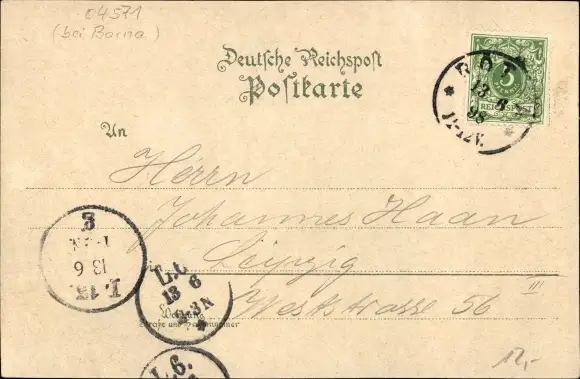 04571
(bei Borna)
Deutsche Reichspost
Postkarte
RÖT
13 6
98
11-12V.
5
PFENNIG
REICHSPOST
An
Herrn
Johannes Haan
Leipzig
Weststrasse 56 III
Wohnung
Straße und Hausnummer
L.13.
13 6
E
L.6.
13 6
2-3N
L.6.
12,-